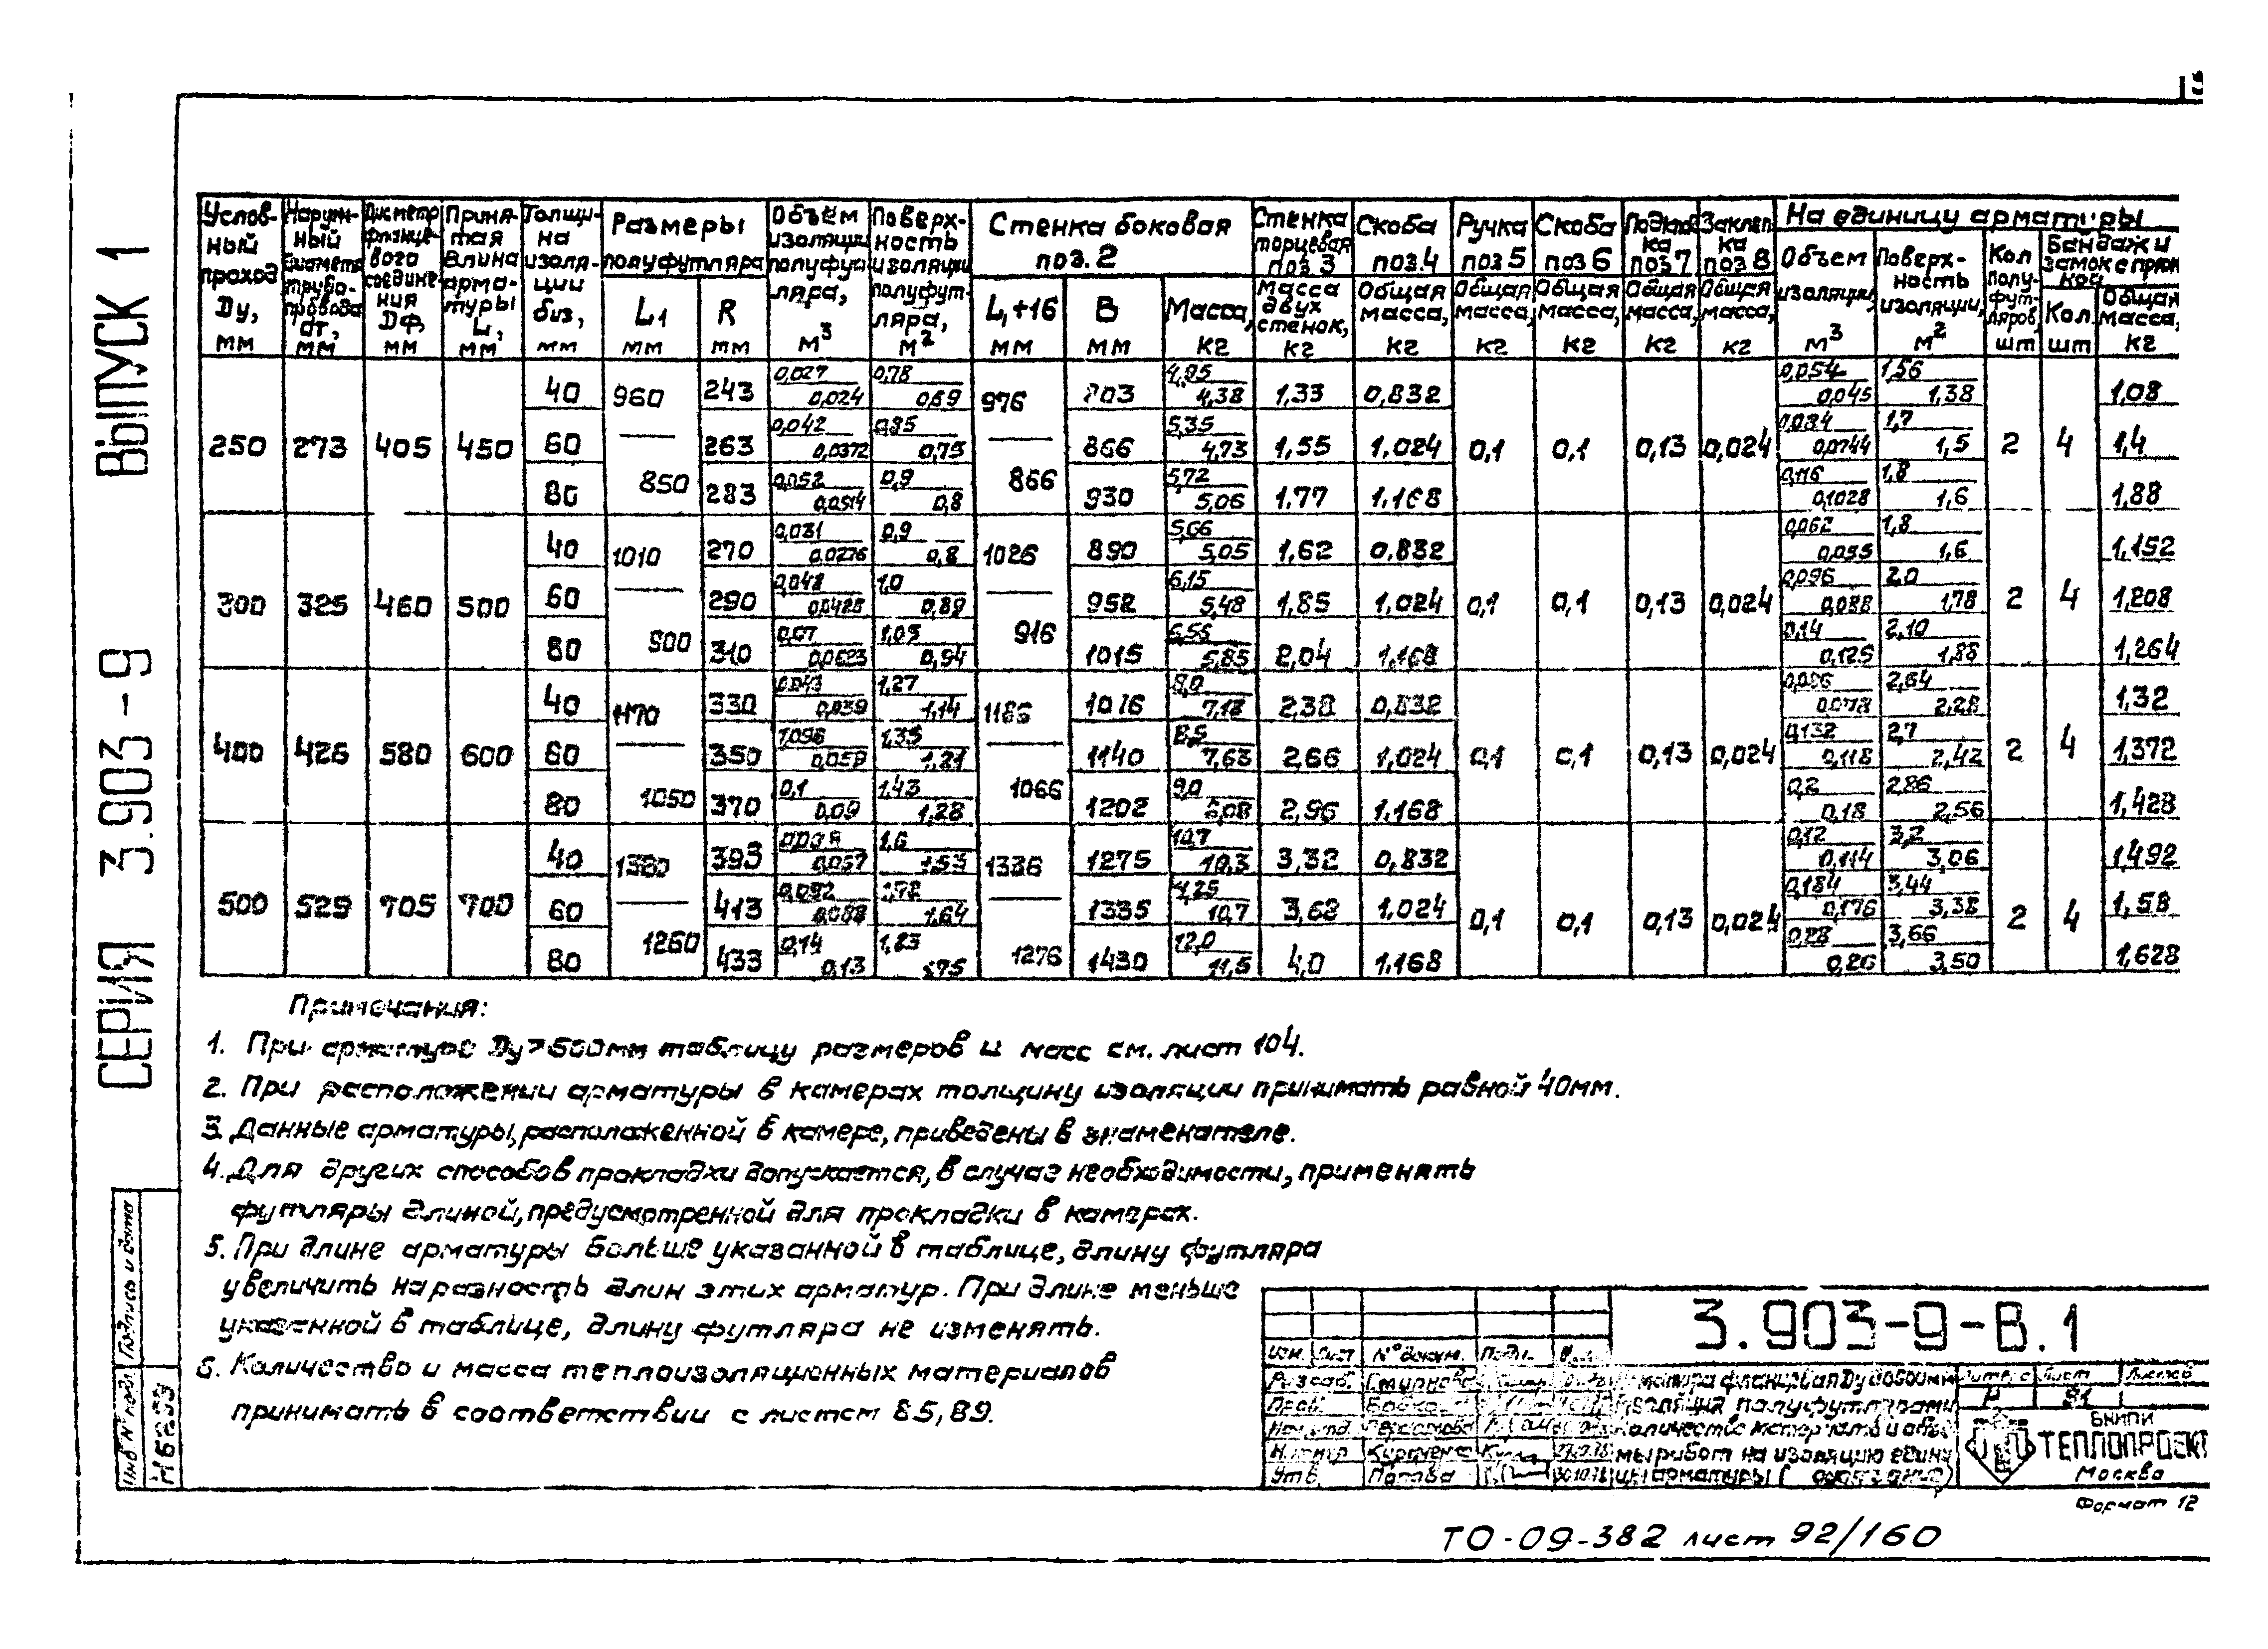 СЕРИЯ 3.903-9 ВЫПУСК 1
Услов-ный проход Dу, мм
Наруж-ный диаметр трубо-провода dт, мм
Диаметр фланце-вого соедине-ния Dф, мм
Приня-тая длина арма-туры L, мм
Толщи-на изоля-ции биз, мм
Размеры полуфутляра
L1 мм
R мм
Объём изоляции полуфут-ляра, м3
Поверх-ность изоляции полуфут-ляра, м2
Стенка боковая поз.2
L1+16 мм
В мм
Масса, кг
Стенка торцевая поз 3 Масса двух стенок, кг
Скоба поз.4 Общая масса, кг
Ручка поз 5 Общая масса, кг
Скоба поз 6 Общая масса, кг
Подклад-ка поз 7 Общая масса, кг
Заклеп-ка поз 8 Общая масса, кг
На единицу арматуры
Объем изоляции, м3
Поверх-ность изоляции, м2
Кол полу-фут-ляров, шт
Бандажи замок с пряж кой
Кол. шт
Общая масса, кг
250 273 405 450
40 960 243 0,027 0,024 0,78 0,69 976 803 4,95 4,38 1,33 0,832 0,054 0,045 1,56 1,38 1,08
60 263 0,042 0,0372 0,85 0,75 866 5,35 4,73 1,55 1,024 0,1 0,1 0,13 0,024 0,084 0,0744 1,7 1,5 2 4 1,4
80 850 283 0,052 0,0514 0,9 0,8 866 930 5,72 5,06 1,77 1,168 0,116 0,1028 1,8 1,6 1,88
300 325 460 500
40 1010 270 0,031 0,0276 0,9 0,8 1026 890 5,66 5,05 1,62 0,832 0,062 0,055 1,8 1,6 1,152
60 290 0,048 0,0428 1,0 0,89 952 6,15 5,48 1,85 1,024 0,1 0,1 0,13 0,024 0,096 0,088 2,0 1,78 2 4 1,208
80 900 310 0,07 0,0623 1,05 0,94 916 1015 6,55 5,85 2,04 1,168 0,14 0,125 2,10 1,88 1,264
400 426 580 600
40 1170 330 0,043 0,039 1,27 1,14 1186 1076 8,0 7,18 2,38 0,832 0,086 0,078 2,54 2,28 1,32
60 350 0,059 1,35 1,21 1140 8,5 7,63 2,66 1,024 0,1 0,1 0,13 0,024 0,132 0,118 2,7 2,42 2 4 1,372
80 1050 370 0,1 0,09 1,43 1,28 1066 1202 9,0 8,08 2,96 1,168 0,2 0,18 2,86 2,56 1,428
500 529 705 700
40 393 0,057 1,6 1,53 1336 1275 10,7 10,3 3,32 0,832 0,12 0,114 3,2 3,06 1,492
60 413 0,092 0,088 1,72 1,64 1335 11,25 10,7 3,68 1,024 0,1 0,1 0,13 0,024 0,184 0,176 3,44 3,38 2 4 1,58
80 1260 433 0,14 0,13 1,83 1,75 1276 1430 12,0 11,5 4,0 1,168 0,28 0,26 3,66 3,50 1,628
Примечания:
1. При арматуре Dу>500мм таблицу размеров и масс см. лист 104.
2. При расположении арматуры в камерах толщину изоляции принимать равной 40мм.
3. Данные арматуры, расположенной в камере, приведены в знаменателе.
4. Для других способов прокладки допускается, в случае необходимости, применять
футляры длиной, предусмотренной для прокладки в камерах.
5. При длине арматуры больше указанной в таблице, длину футляра
увеличить на разность длин этих арматур. При длине меньше
указанной в таблице, длину футляра не изменять.
6. Количество и масса теплоизоляционных материалов
принимать в соответствии с листом 85,89.
Инв № подл Подпись и дата
3.903-9-В.1
Изм. Лист № докум. Подп.
Разраб. Смирнова
Пров.
Н.контр
Утв. Попова
Арматура фланцевая Dу
Изоляция полуфутлярами
Количество материалов и объе
мы работ на изоляцию едини
цы арматуры
Лист Листов
Р 91
ВНИПИ
ТЕПЛОПРОЕКТ
Москва
Формат 12
ТО-09-382 лист 92/160